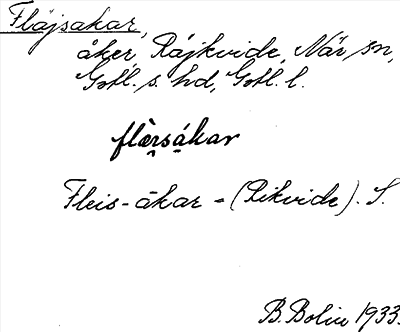 Fläjsakar,
åker, Räjkvide, När sn,
Gotl. s. hd, Gotl. l.
flèrsákar
Fleis-åkar - (Rikvide). S.
B. Bolin 1933.